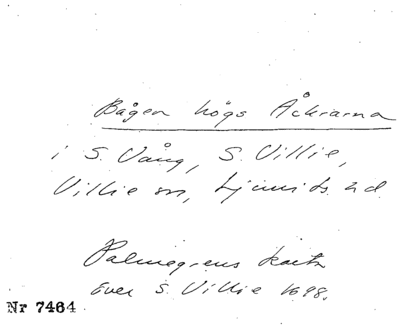 Bågen högs Åkrarna
i S. Vång, S. Villie,
Villie sn, Ljunits hd
Palmegrens karta
över S. Villie 1698.
Nr 7464